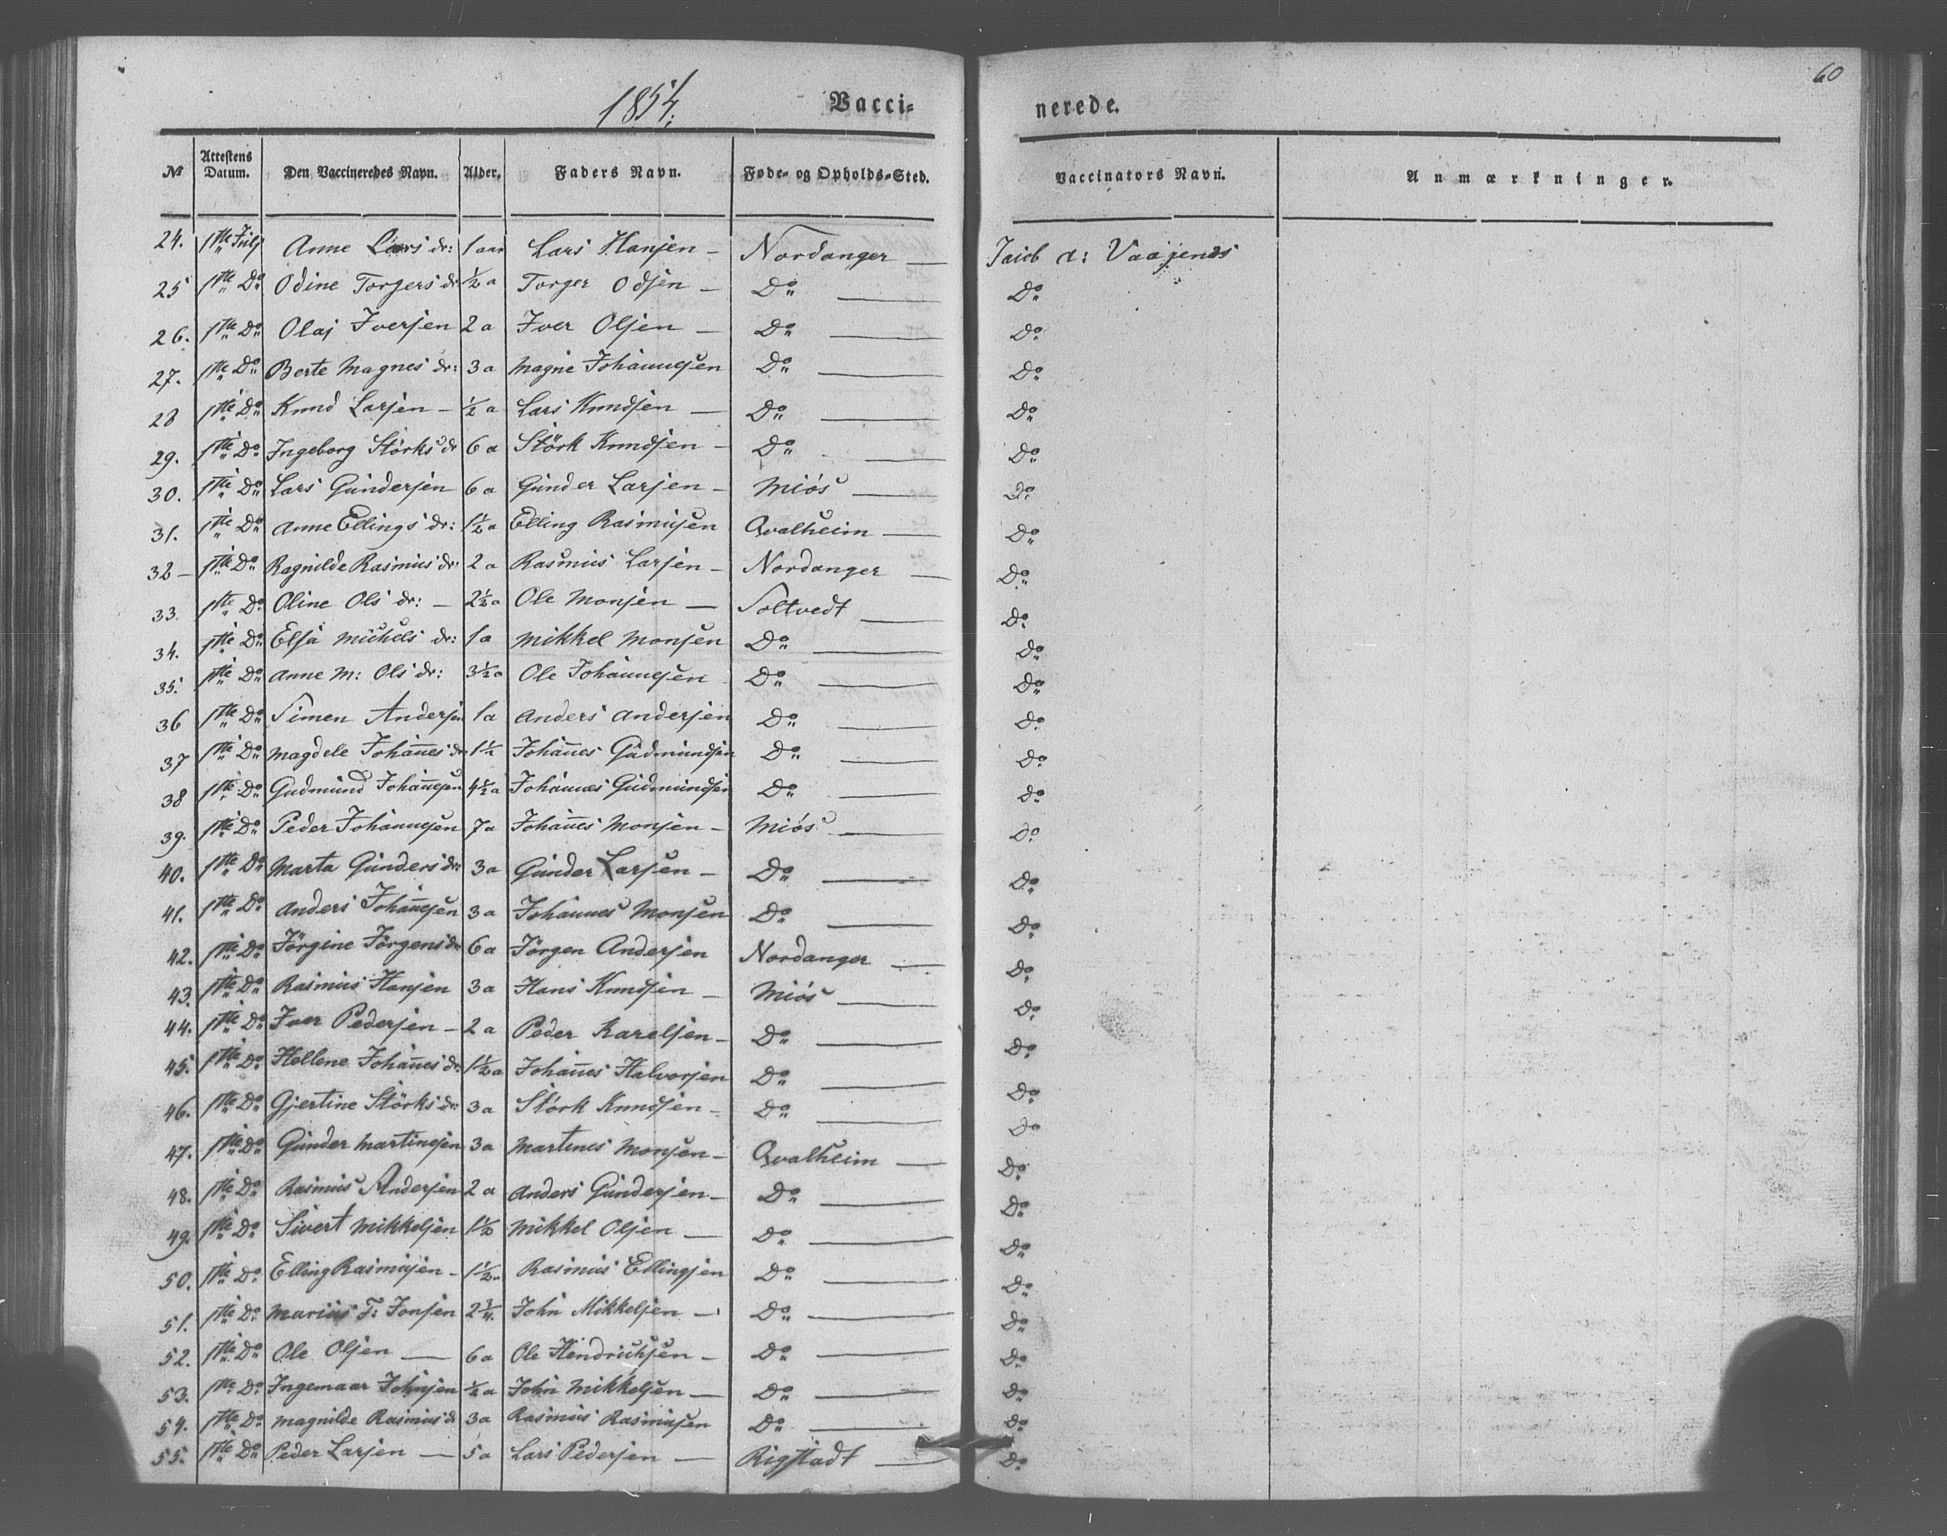 60
1854.
Vacci- nerede.
No Attestens Datum. Den Vaccineredes Navn. Alder. Faders Navn. Føde- og Opholds-Sted. Vaccinators Navn. Anmærkninger.
24. 1ste July Anne Lars dr: 1 aar Lars Hansen - Nordanger — d: Vaagenæs
25 1ste Do Odine Torgers dr 1/2 a Torger Odsen - Do — Do
26. 1ste Do Olai Iversen 2 a Iver Olsen - Do — Do
27. 1ste Do Berte Magnes dr: 3 a Magne Johannesen Do — Do
28 1ste Do Knud Larsen - 1/2 a Lars Knudsen — Do — Do
29. 1ste Do Ingeborg Störks dr 6 a Störk Knudsen - Do — Do
30. 1ste Do Lars Gundersen 6 a Gunder Larsen - Miös — Do
31. 1ste Do Anne Ellings dr: 1 1/2 a Elling Rasmusen Qvalheim — Do
32 - 1ste Do Ragnilde Rasmus dr: 2 a Rasmus Larsen - Nordanger — Do
33. 1ste Do Oline Ols dr: - 2 1/2 a Ole Monsen — Soltvedt — Do
34. 1ste Do Elsa Michels dr: 1 a Mikkel Monsen Do — Do
35. 1ste Do Anne M: Ols dr: 3 1/2 a Ole Johannesen Do — Do
36 1ste Do Simen Andersen 1 a Anders Andersen Do — Do
37 1ste Do Magdele Johannes dr 1 1/2 Johannes Gudmundsen Do — Do
38 1ste Do Gudmund Johannesen 4 1/2 a Johannes Gudmundsen Do — Do
39. 1ste Do Peder Johannesen 7 a Johannes Monsen - Miös — Do
40. 1ste Do Marta Gunders dr 3 a Gunder Larsen - Do — Do
41. 1ste Do Anders Johannesen 3 a Johannes Monsen Do — Do
42. 1ste Do Jörgine Jörgens dr 6 a Jörgen Andersen Nordanger — Do
43. 1ste Do Rasmus Hansen 3 a Hans Knudsen - Miös — Do
44. 1ste Do Iver Pedersen - 2 a Peder Karelsen - Do — Do
45. 1ste Do Hellene Johannes dr. 1 1/2 a Johannes Halvorsen Do — Do
46. 1ste Do Gjertine Störks dr: 3 a Störk Knudsen - Do — Do
47. 1ste Do Gunder Martinesen 3 a Martines Monsen - Qvalheim — Do
48. 1ste Do Rasmus Andersen 2 a Anders Gundersen - Do — Do
49. 1ste Do Sivert Mikkelsen 1 1/2 Mikkel Olsen — Do — Do
50. 1ste Do Elling Rasmusen - 1 1/2 a Rasmus Ellingsen Do — Do
51. 1ste Do Marius T: Jonsen 2 3/4 John Mikkelsen - Do — Do
52. 1ste Do Ole Olsen — 6 a Ole Hendrichsen - Do — Do
53. 1ste Do Ingemaar Johnsen 1/2 a John Mikkelsen — Do — Do
54. 1ste Do Magnilde Rasmus dr 3 a Rasmus Rasmusen Do — Do
55. 1ste Do Peder Larsen — 5 a Lars Pedersen — Rigstadt — Do